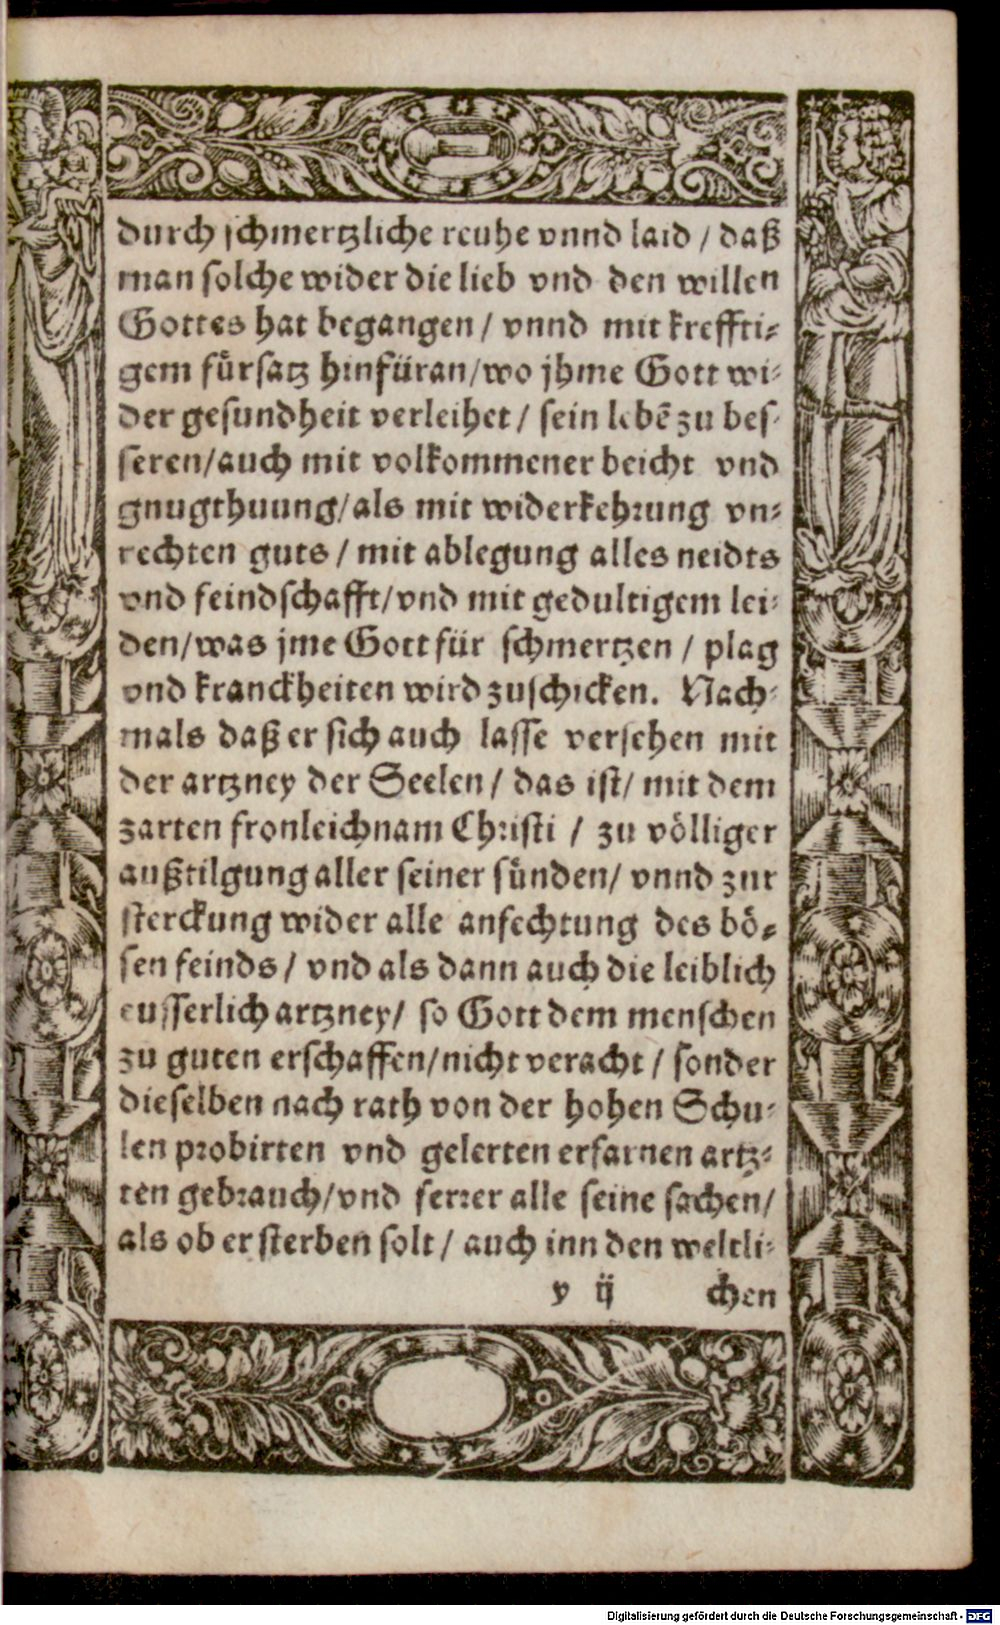 durch schmertzliche reuhe vnnd laid / daß
man solche wider die lieb vnd den willen
Gottes hat begangen / vnnd mit kreffti-
gem fürsatz hinfüran/wo jhme Gott wi-
der gesundheit verleihet / sein lebē zu bes-
seren/auch mit volkommener beicht vnd
gnugthuung/als mit widerkehrung vn-
rechten guts / mit ablegung alles neidts
vnd feindschafft/vnd mit gedultigem lei-
den/was jme Gott für schmertzen / plag
vnd kranckheiten wird zuschicken. Nach-
mals daß er sich auch lasse versehen mit
der artzney der Seelen / das ist/ mit dem
zarten fronleichnam Christi / zu völliger
außtilgung aller seiner sünden/ vnnd zur
sterckung wider alle anfechtung des bö-
sen feinds / vnd als dann auch die leiblich
eusserlich artzney/ so Gott dem menschen
zu guten erschaffen/nicht veracht / sonder
dieselben nach rath von der hohen Schu-
len probirten vnd gelerten erfarnen artz-
ten gebrauch/vnd ferrer alle seine sachen/
als ob er sterben solt / auch inn den weltli-
y ij chen
Digitalisierung gefördert durch die Deutsche Forschungsgemeinschaft - DFG